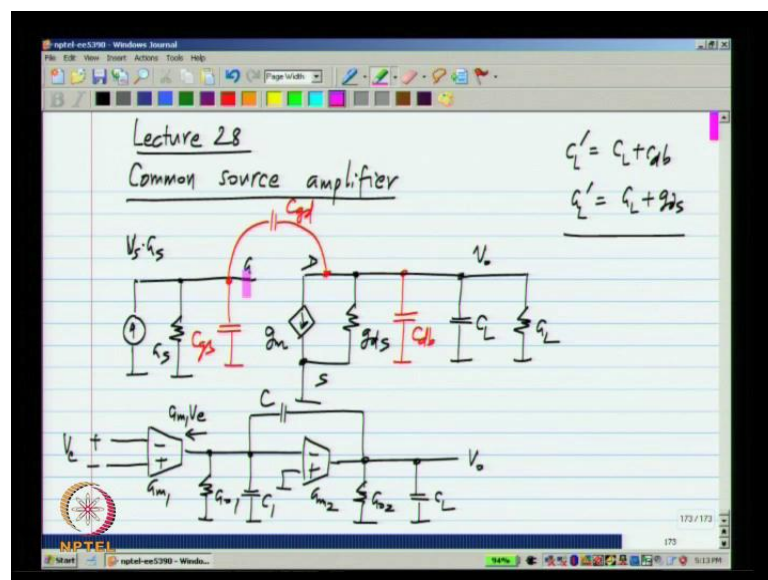 nptel-ee5390 - Windows Journal
File Edit View Insert Actions Tools Help
Page Width
B I
Lecture 28
Common source amplifier
C_L' = C_L + C_db
G_L' = G_L + g_ds
V_s·G_s
C_gd
G
D
V_o
G_s
C_gs
g_m
g_ds
C_db
C_L
G_L
S
C
G_m1 V_e
V_e
+
-
-
+
G_m1
G_o1
C_1
-
+
G_m2
G_o2
C_L
V_o
173 / 173
173
NPTEL
Start
nptel-ee5390 - Windo...
94%
5:13 PM